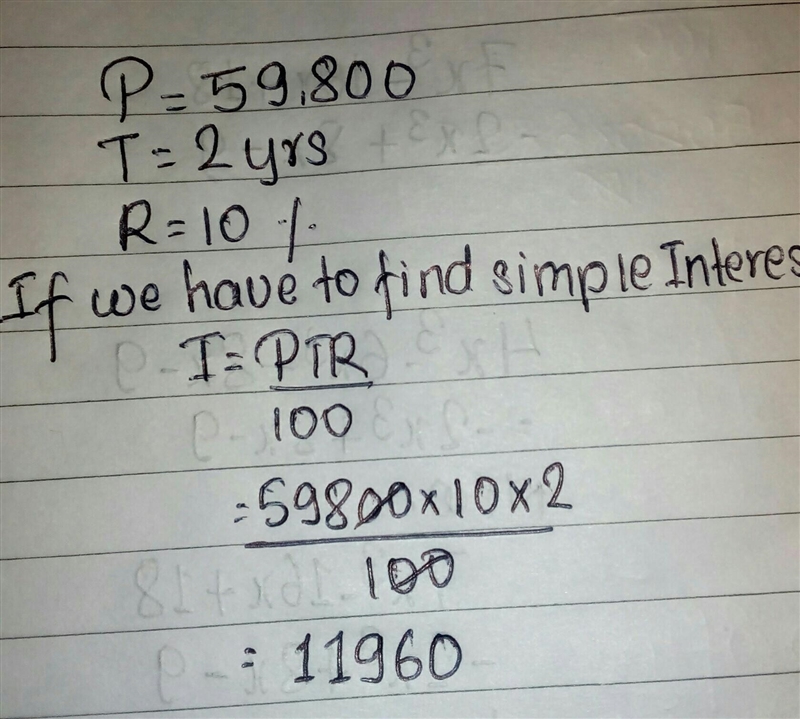 P = 59,800
T = 2 yrs
R = 10 %
If we have to find simple Interes
I = PTR
100
= 59800 × 10 × 2
100
= 11960